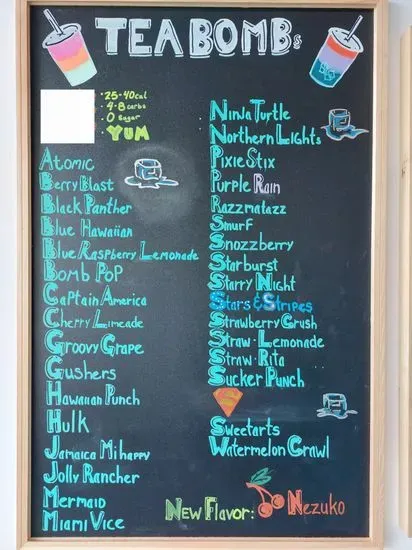 TEA BOMBs
·25-40cal
·4-8 carbs
·0 sugar
YUM
Atomic
Berry Blast
Black Panther
Blue Hawaiian
Blue Raspberry Lemonade
Bomb Pop
Captain America
Cherry Limeade
Groovy Grape
Gushers
Hawaiian Punch
Hulk
Jamaica Mi happy
Jolly Rancher
Mermaid
Miami Vice
Ninja Turtle
Northern Lights
Pixie Stix
Purple Rain
Razzmatazz
Smurf
Snozzberry
Starburst
Starry Night
Stars & Stripes
Strawberry Crush
Straw-Lemonade
Straw-Rita
Sucker Punch
S
Sweetarts
Watermelon Crawl
New Flavor: Nezuko